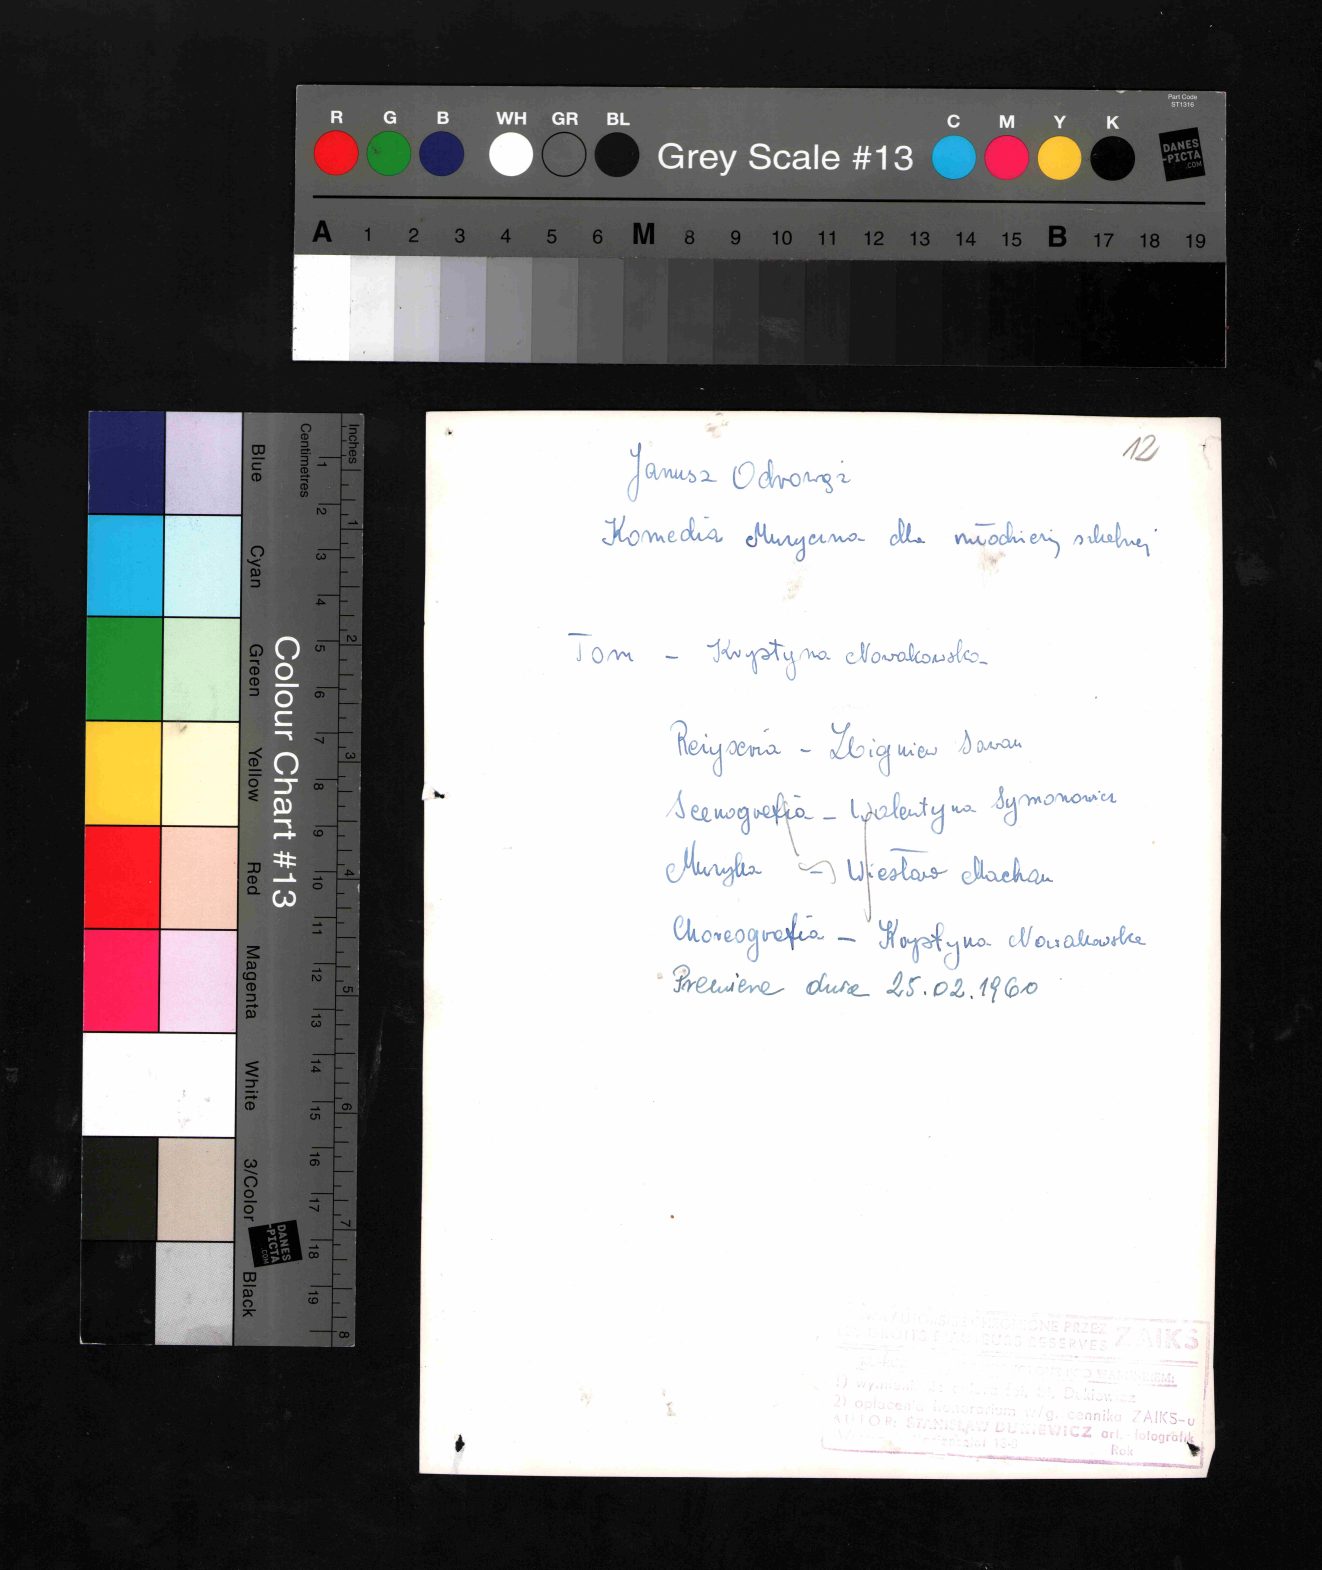 Part Code
ST1316
R G B WH GR BL Grey Scale #13 C M Y K
DANES
-PICTA
.COM
A 1 2 3 4 5 6 M 8 9 10 11 12 13 14 15 B 17 18 19
Colour Chart #13
Blue
Cyan
Green
Yellow
Red
Magenta
White
3/Color
Black
Centimetres
1 2 3 4 5 6 7 8 9 10 11 12 13 14 15 16 17 18 19
Inches
1 2 3 4 5 6 7 8
DANES
-PICTA
.COM
12
Janusz Odrowąż
Komedia Muzyczna dla młodzieży szkolnej
Tom - Krystyna Nowakowska
Reżyseria - Zbigniew Sawan
Scenografia - Walentyna Symonowicz
Muzyka - Wiesław Machan
Choreografia - Krystyna Nowakowska
Premiera dnia 25.02.1960
PRZEZ ZAIKS
RESERVES
2) opłacenia honorarium w/g. cennika ZAIKS-u
AUTOR: STANISŁAW DUKIEWICZ art.-fotografik
Rok